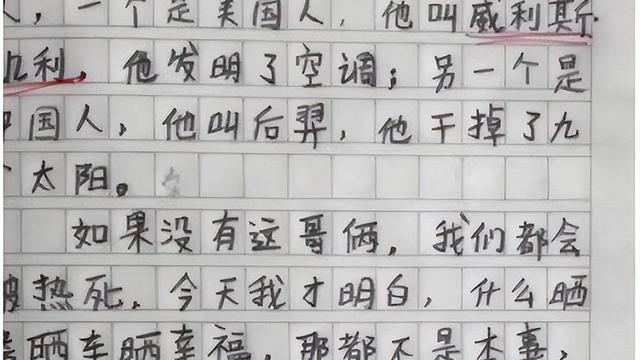 人，一个是美国人，他叫威利斯
凯利，他发明了空调；另一个是
中国人，他叫后羿，他干掉了九
个太阳。
如果没有这哥俩，我们都会
被热死，今天我才明白，什么晒
晒车晒幸福，那都不是本事，